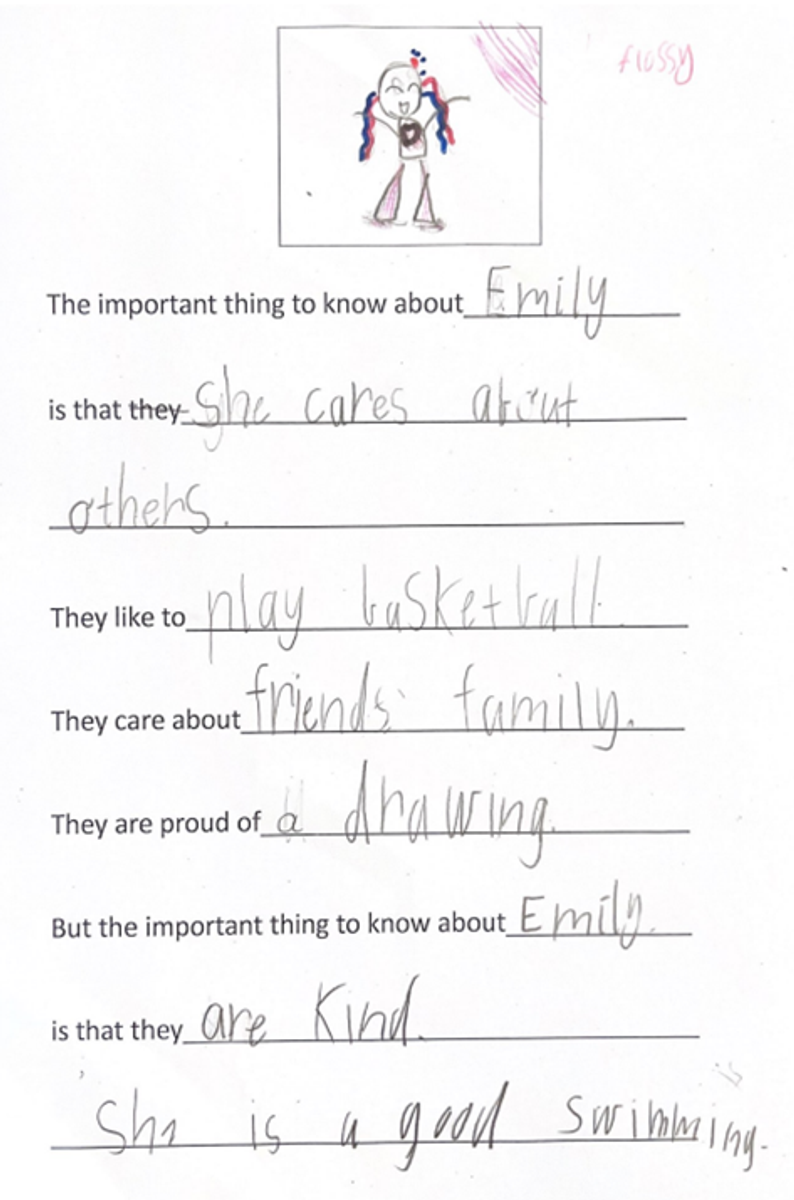 flossy
The important thing to know about Emily
is that they she cares about
others.
They like to play basketball
They care about friends family.
They are proud of a drawing.
But the important thing to know about Emily.
is that they are kind.
She is a good swimming.